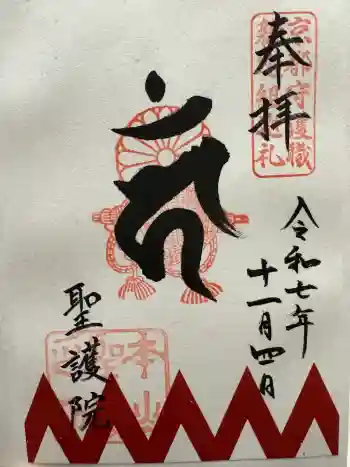 京都守護職
奉拝
令和七年
十一月四日
本山
聖護院